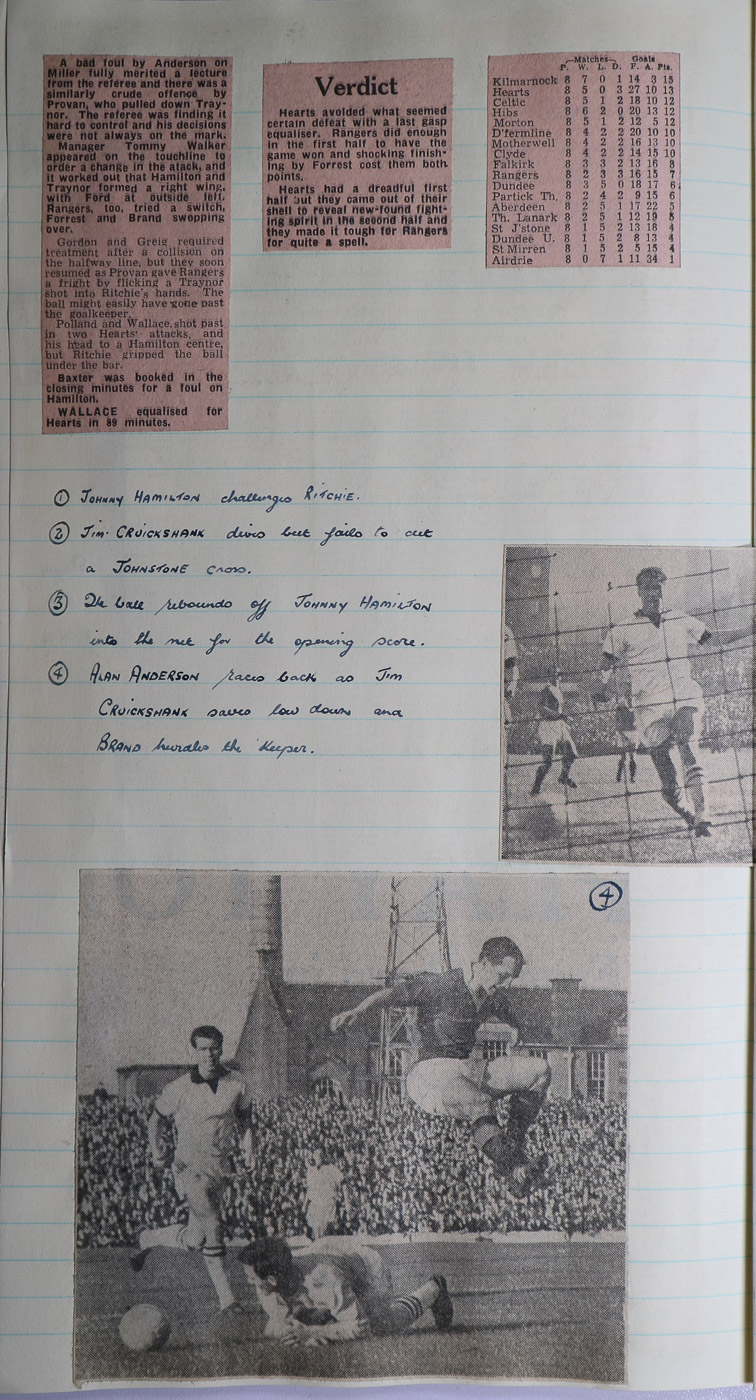 A bad foul by Anderson on
Miller fully merited a lecture
from the referee and there was a
similarly crude offence by
Provan, who pulled down Tray-
nor. The referee was finding it
hard to control and his decisions
were not always on the mark.
Manager Tommy Walker
appeared on the touchline to
order a change in the attack, and
it worked out that Hamilton and
Traynor formed a right wing,
with Ford at outside left.
Rangers, too, tried a switch,
Forrest and Brand swopping
over.
Gordon and Greig required
treatment after a collision on
the halfway line, but they soon
resumed as Provan gave Rangers
a fright by flicking a Traynor
shot into Ritchie's hands. The
ball might easily have gone past
the goalkeeper.
Polland and Wallace shot past
in two Hearts' attacks, and
his head to a Hamilton centre,
but Ritchie gripped the ball
under the bar.
Baxter was booked in the
closing minutes for a foul on
Hamilton.
WALLACE equalised for
Hearts in 89 minutes.
Verdict
Hearts avoided what seemed
certain defeat with a last gasp
equaliser. Rangers did enough
in the first half to have the
game won and shocking finish-
ing by Forrest cost them both
points.
Hearts had a dreadful first
half but they came out of their
shell to reveal new-found fight-
ing spirit in the second half and
they made it tough for Rangers
for quite a spell.
Matches Goals
P. W. L. D. F. A. Pts.
Kilmarnock 8 7 0 1 14 3 15
Hearts 8 5 0 3 27 10 13
Celtic 8 5 1 2 18 10 12
Hibs 8 6 2 0 20 13 12
Morton 8 5 1 2 12 5 12
D'fermline 8 4 2 2 20 10 10
Motherwell 8 4 2 2 16 13 10
Clyde 8 4 2 2 14 15 10
Falkirk 8 3 3 2 13 16 8
Rangers 8 2 3 3 16 15 7
Dundee 8 3 5 0 18 17 6
Partick Th. 8 2 4 2 9 15 6
Aberdeen 8 2 5 1 17 22 5
Th. Lanark 8 2 5 1 12 19 5
St J'stone 8 1 5 2 13 18 4
Dundee U. 8 1 5 2 8 13 4
St Mirren 8 1 5 2 5 15 4
Airdrie 8 0 7 1 11 34 1
① JOHNNY HAMILTON challenges RITCHIE.
② JIM CRUICKSHANK dives but fails to cut
a JOHNSTONE cross.
③ The ball rebounds off JOHNNY HAMILTON
into the net for the opening score.
④ ALAN ANDERSON races back as JIM
CRUICKSHANK saves low down and
BRAND hurdles the keeper.
④